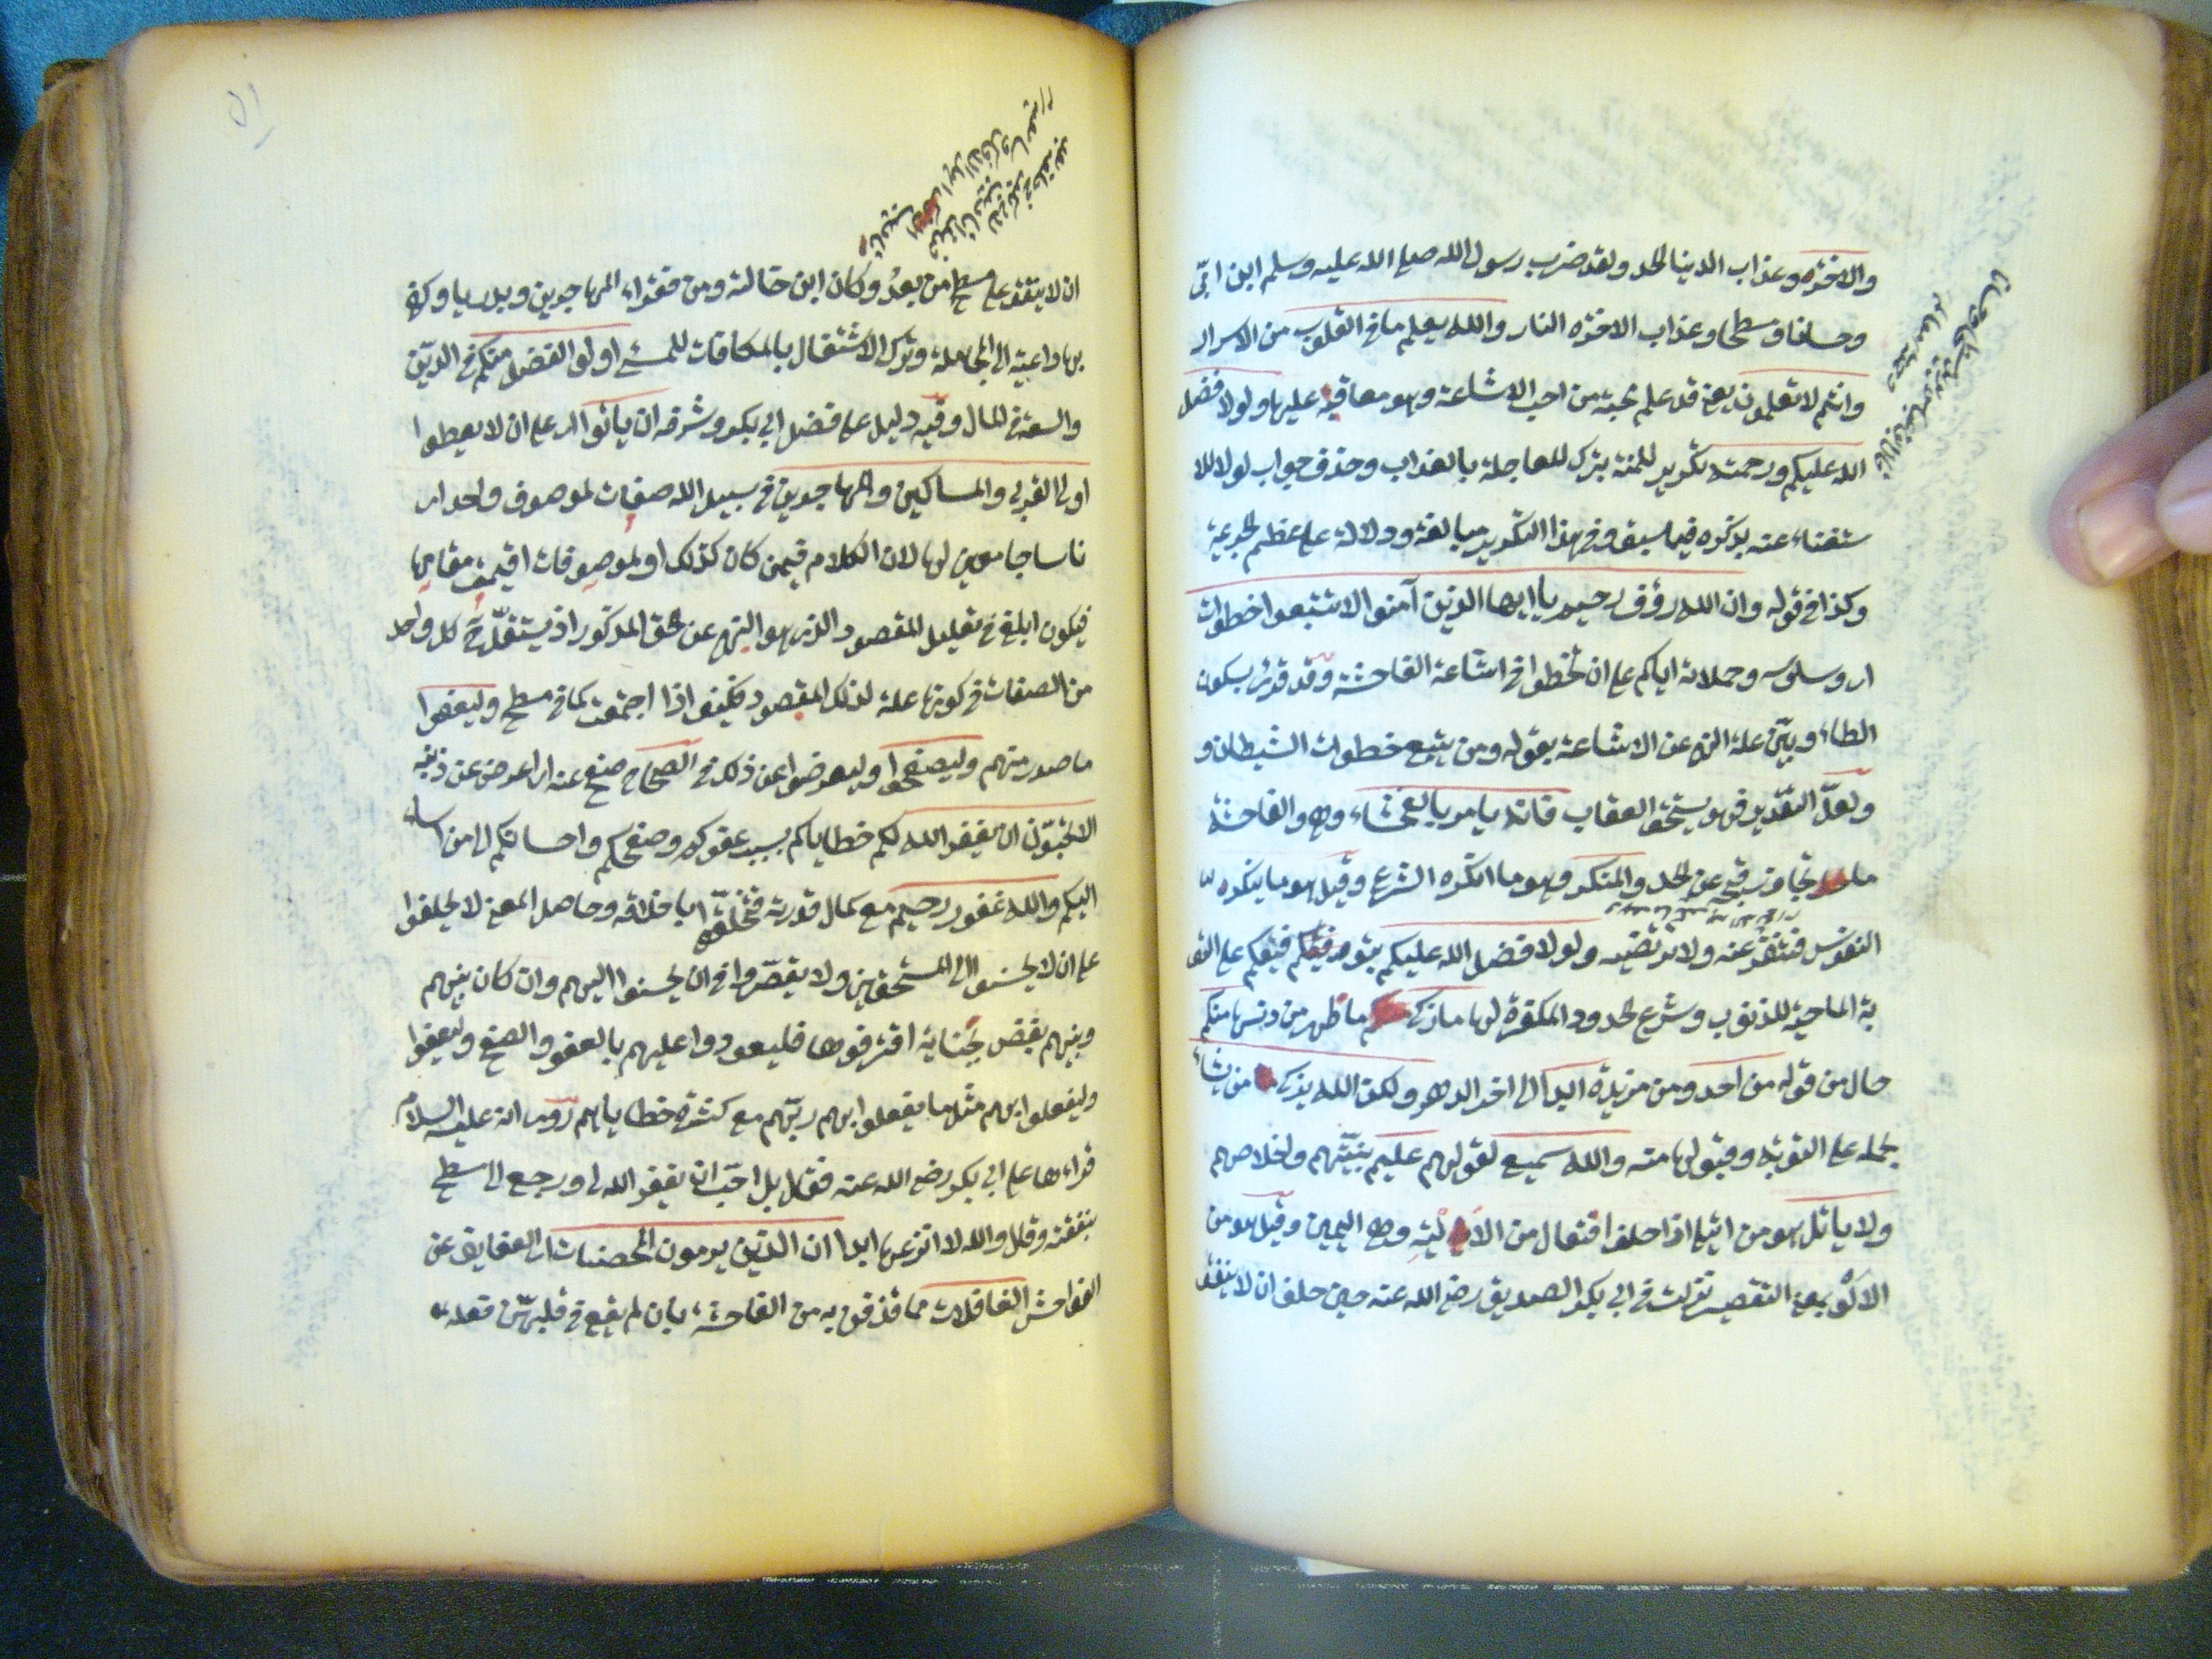 والاخرة وعذاب الدنيا الحد ولقد ضرب رسول الله صلى الله عليه وسلم ابن ابىّ
وحسانا ومسطحا وعذاب الاخرة النار والله يعلم ما فى القلوب من الاسرار
وانتم لا تعلمون يعنى قد علم محبة من احب الاشاعة وهو معاقبه عليها ولولا فضل
الله عليكم ورحمته تكرير للمنة بترك المعاجلة بالعذاب وحذف جواب لولا للا
ستغناء عنه بذكره فيما سبق وفى هذا التكرير مبالغة ودلالة على عظم الجريمة
وكذا فى قوله وان الله رؤف رحيم يا ايها الذين آمنوا لا تتبعوا خطوات
اى وساوسه وحملاته اياكم على ان تخطوا فى اشاعة الفاحشة وقد قرئ بسكون
الطاء وبيّن علة النهى عن الاشاعة بقوله ومن يتبع خطوات الشيطان و
ولعلّ التقدير فهو يستحق العقاب فانه يامر بالفحشاء وهى الفاحشة
ما تجاوز قبحه عن الحد والمنكر وهو ما انكره الشرع وقيل هو ما ينكره
النفوس فتنفر عنه ولا ترتضيه ولولا فضل الله عليكم بتوفيقكم على التو
بة الماحية للذنوب وشرع الحدود المكفرة لها ما زكى ما طهر من دنسها منكم
حال من قوله من احد ومن مزيدة ابدا الى اخر الدهر ولكن الله يزكى من يشاء
بحمله على التوبة وقبولها منه والله سميع لقولهم عليم بنيّتهم واخلاصهم
ولا ياتل هو من ائتلى اذا حلف افتعال من الالية وهى اليمين وقيل هو من
الالو بمعنى التقصير نزلت فى ابى بكر الصديق رضى الله عنه حين حلف ان لا ينفق
ان لا ينفق على مسطح من بعدُ وكان ابن خالته ومن فقراء المهاجرين
بها داعية الى المجاملة وترك الاشتغال بالمكافات للمسئ اولوا الفضل منكم فى الدين
والسعة فى المال وفيه دليل على فضل ابى بكر وشرفه ان يأتوا اى على ان لا يعطوا
اولى القربى والمساكين والمهاجرين فى سبيل الله صفات لموصوف واحد اى
ناسا جامعين لها لان الكلام فيمن كان كذلك او لموصوفات اقيمت مقامها
فيكون ابلغ فى تعليل المقصود الذى هو النهى عن المذكور اذ يستقلّ كل واحد
من الصفات فى كونها علة لذلك المقصود فكيف اذا اجتمعت كما فى مسطح وليعفوا
ما صدر منهم وليصفحوا وليعرضوا عن ذلك فى الصحاح صفح عنه اى اعرض عن ذنبه
الا تحبّون ان يغفر الله لكم خطاياكم بسبب عفوكم وصفحكم واحسانكم الى من اساء
اليكم والله غفور رحيم مع كمال قدرته فتخلّقوا باخلاقه وحاصل المعنى لا يحلفوا
على ان لا يحسنوا الى المستحقين ولا يقصّروا فى ان يحسنوا اليهم وان كان بينهم
وبينهم بغض لجناية اقترفوها فليعودوا عليهم بالعفو والصفح وليعفوا
وليفعلوا بهم مثل ما يفعلوا بهم ربّهم مع كثرة خطاياهم روى انه عليه السلام
قراءها على ابى بكر رضى الله عنه فقال بل احبّ ان يغفر الله لى ورجع الى مسطح
بنفقته وقال والله لا انزعها ابدا ان الذين يرمون المحصنات اى العفايف عن
الفواحش الغافلات مما قذفن به من الفاحشة بان لم يقع فى قلبهنّ فعله